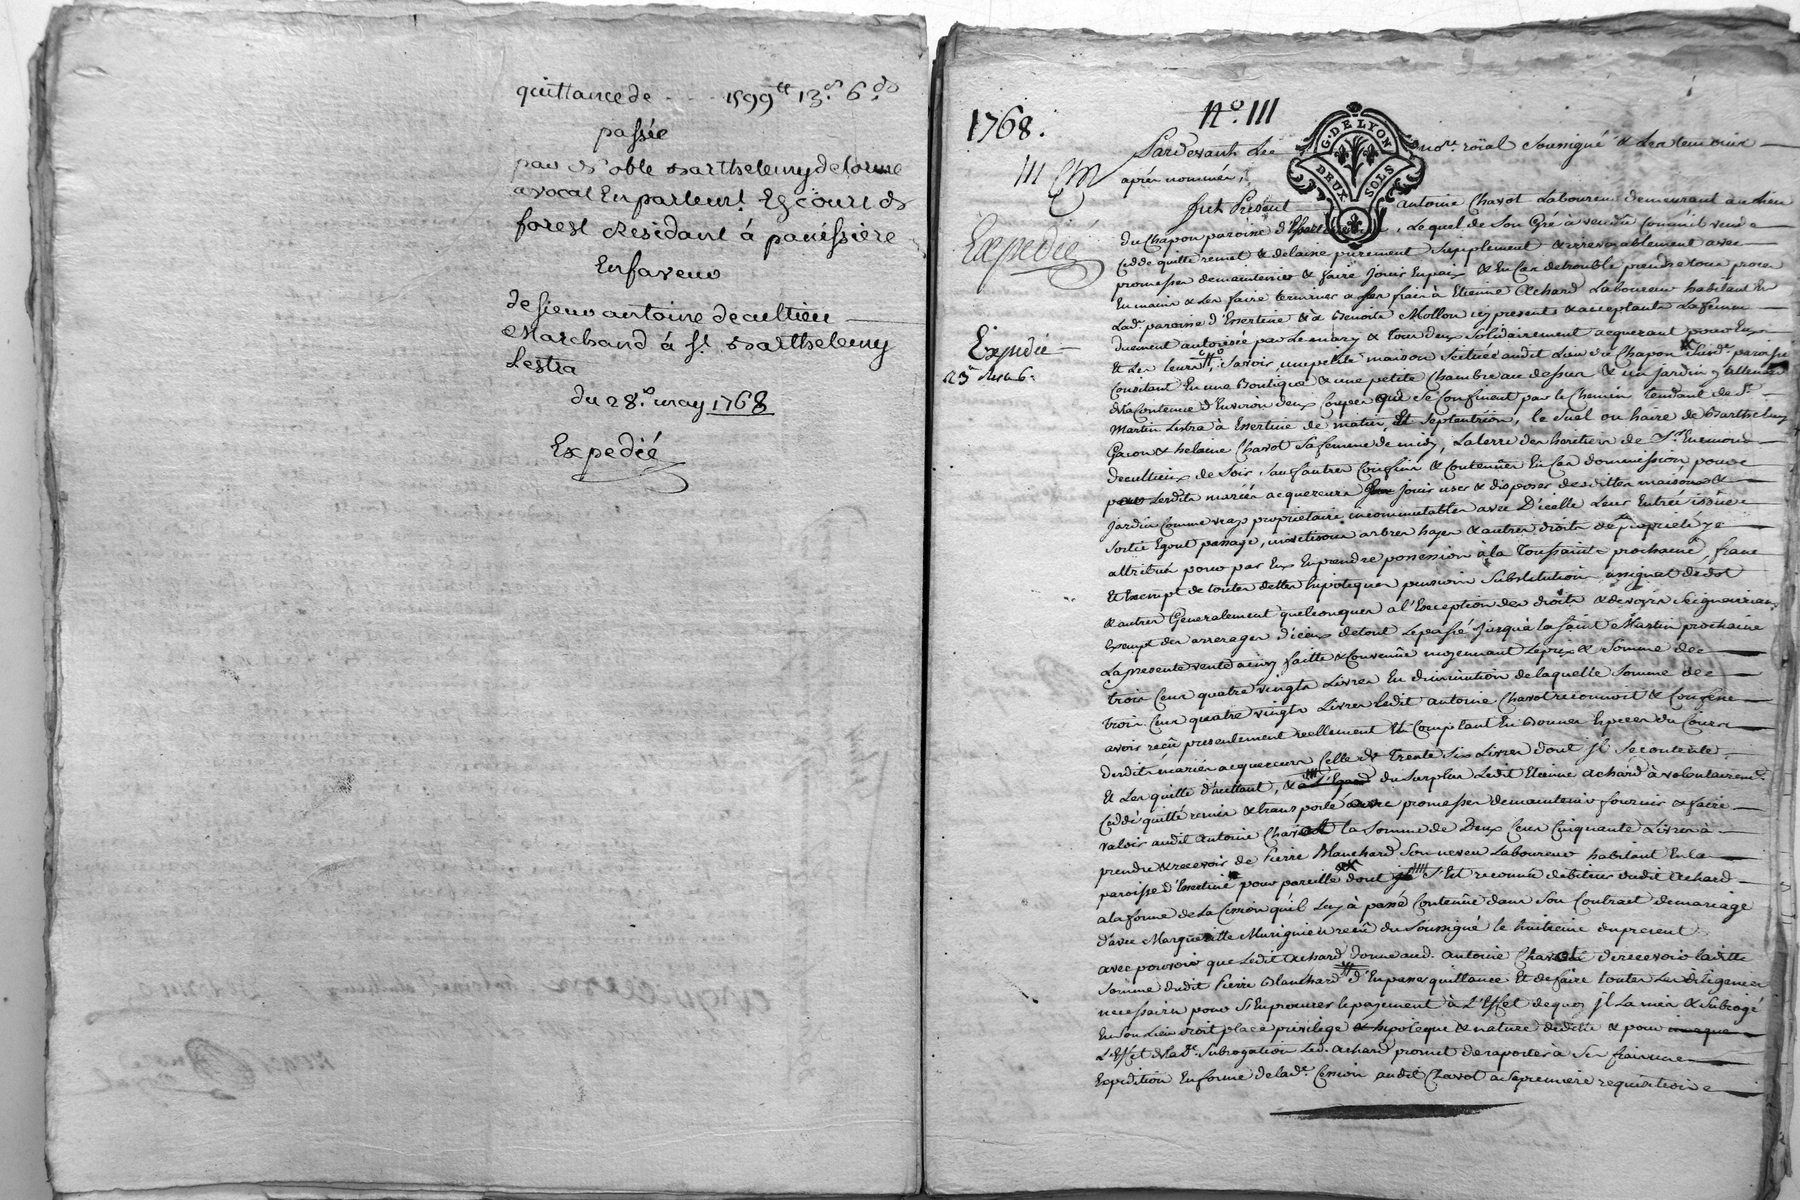 quittance de .... 1599ᵗᵗ 13ˢ 6ᵈ
passée
par Noble Barthelemy delorme
avocat En parlemt. Es cours de
forest Residant à panissière
En faveur
de sieur antoine decultieu
Marchand à St. Barthelemy
Lestra
du 28.e may 1768
Expedié
1768.
N.o 111
G. DE LYON
DEUX SOLS
111
Expedié
Expedié
Pardevant Le nore. roïal soussigné & Les temoins
après nommés,
fut Présent antoine Chavot Laboureur demeurant au lieu
du Chapon paroisse d'Essertine, Lequel de Son Gré à vendu Comm'il vend
Cedde quitte remet & delaisse purement Simplement & irrevocablement avec
promesse de maintenir & faire Jouir En paix & En Cas de trouble prendre tous procès
En main & Les faire terminer a ses frais à Etienne Achard Laboureur habitant En
Lade. paroisse d'Essertine & à Benoite Mollon icy presents & acceptants La femme
duement autorisée par Le mary & tous deux Solidairement acquerant pour Eux
Et Les Leurs, Savoir une petite maison Scituée audit Lieu du Chapon Susde. paroisse
Consitant En une Boutique & une petite Chambre au dessus & un Jardin y attenant
de la Contenue d'Environ deux Coupes qui Se Confinent par le Chemin tendant de St.
Martin Lestra à Essertine de matin, Et Septentrion, le Suel ou haire de Barthelemy
Garon & helaine Chavot Sa femme de midy, La terre des heritiers de Sr. Enemond
decultieux de Soir, Sauf autres Confins & Contenûe En Cas d'ommission pour
par Lesdits mariés acquereurs Jouir user & disposer desdittes maison &
Jardin Comme vrays proprietaire incommutables avec D'icelle Leurs Entrée issûe
Sortie Egout passage, mais arbres hayes & autres droits de proprieté y
attribués pour par Eux En prendre possession à la Toussaints prochaine, franc
Et Exempt de toutes dettes hipoteques pension Substitution assignat de dot
& autres Generalement quelconques a l'Exception des droits & devoirs Seigneuriaux
Exempt des arrerages d'iceux de tout Le passé Jusqu'à la Saint Martin prochaine
La presente vente ainsy faitte & Convenûe moyennant Le prix & Somme de
trois Cens quatre vingts Livres En diminution de laquelle Somme de
trois Cens quatre vingts Livres Ledit antoine Chavot reconnoit & Confesse
avoir reçû presentement reellement Et Comptant En Bonnes Especes du Cours
desdits mariés acquereurs Celle de Trente Six Livres dont jl Se contente
Et Les quitte d'autant, & du Surplus Ledit Etienne Achard à volontairemt.
Ceddé quitté remis & transporté avec promesses de maintenir fournir & faire
valoir audit Antoine Chavot la Somme de Deux Cens Cinquante Livres à
prendre & recevoir de Pierre Blanchard Son neveu Laboureur habitant En la
paroisse d'Essertine pour pareille dont S'Est reconnu debiteur dudit Achard
a la forme de La Cession qu'il Luy à passé Contenûe dans Son Contrait de mariage
d'avec Margueritte Murignieu reçû du Soussigné le huitieme du present
avec pouvoir que Ledit Achard donne aud. Antoine Chavot de recevoir laditte
Somme dudit Pierre Blanchard d'En passer quittance Et de faire toutes Les diligences
necessaires pour S'En procurer le payement à L'Effet de quoy jl La mis & Subrogé
En Son Lieu droit place privilege & hipoteque & nature de dette & pour
L'Effet de lade. Subrogation Led. Achard promet de raporter à Ses frais une
Expedition En forme de lade. Cession audit Chavot a Sa premiere requisition